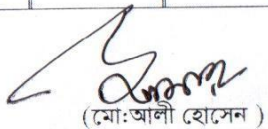 (মো:আলী হোসেন )